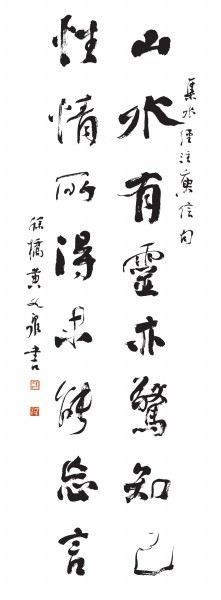 集水經注庾信句
山水有靈亦驚知己
性情所得未能忘言
徐橋黄文泉書